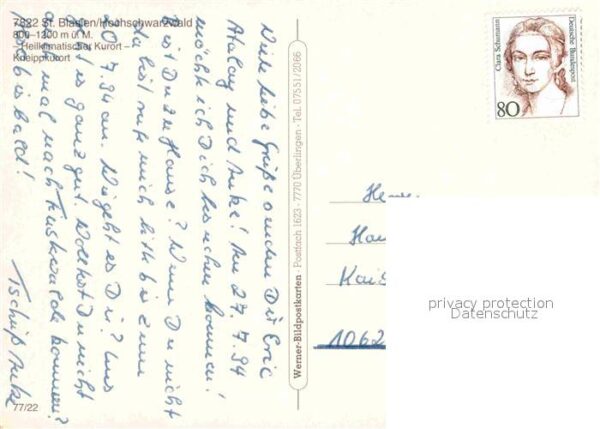 7822 St. Blasien/Hochschwarzwald
800–1300 m ü. M.
– Heilklimatischer Kurort –
Kneippkurort
Viele liebe Grüße senden Dir Eric
Atalay und Anke! Am 27.7.94
möchte ich Dich besuchen kommen!
Bist Du zu Hause? Wenn Du nicht
da bist rufe mich bitte bis zum
20.7.94 an. Wie geht es Dir? Uns
geht es ganz gut. Wolltest Du nicht
auch mal nach kommen?
Also bis bald!
Tschüß Anke
77/22
Werner-Bildpostkarten · Postfach 1623 · 7770 Überlingen · Tel. 07551/2066
Clara Schumann
Deutsche Bundespost
80
Her
Han
Kais
1062
privacy protection
Datenschutz